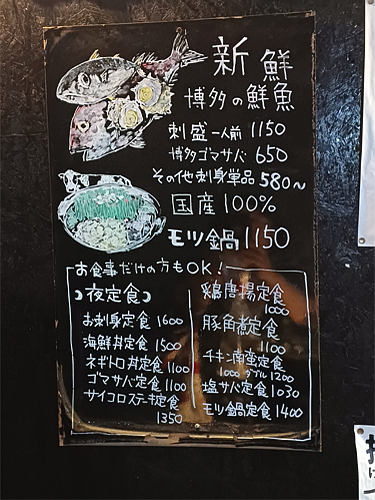 新鮮
博多の鮮魚
刺盛一人前 1150
博多ゴマサバ 650
その他刺身単品 580〜
国産100%
モツ鍋 1150
お食事だけの方もOK!
夜定食
お刺身定食 1600
海鮮丼定食 1500
ネギトロ丼定食 1100
ゴマサバ定食 1100
サイコロステーキ定食
1350
鶏唐揚定食
1000
豚角煮定食
1100
チキン南蛮定食
1000 ダブル 1200
塩サバ定食 1030
モツ鍋定食 1400